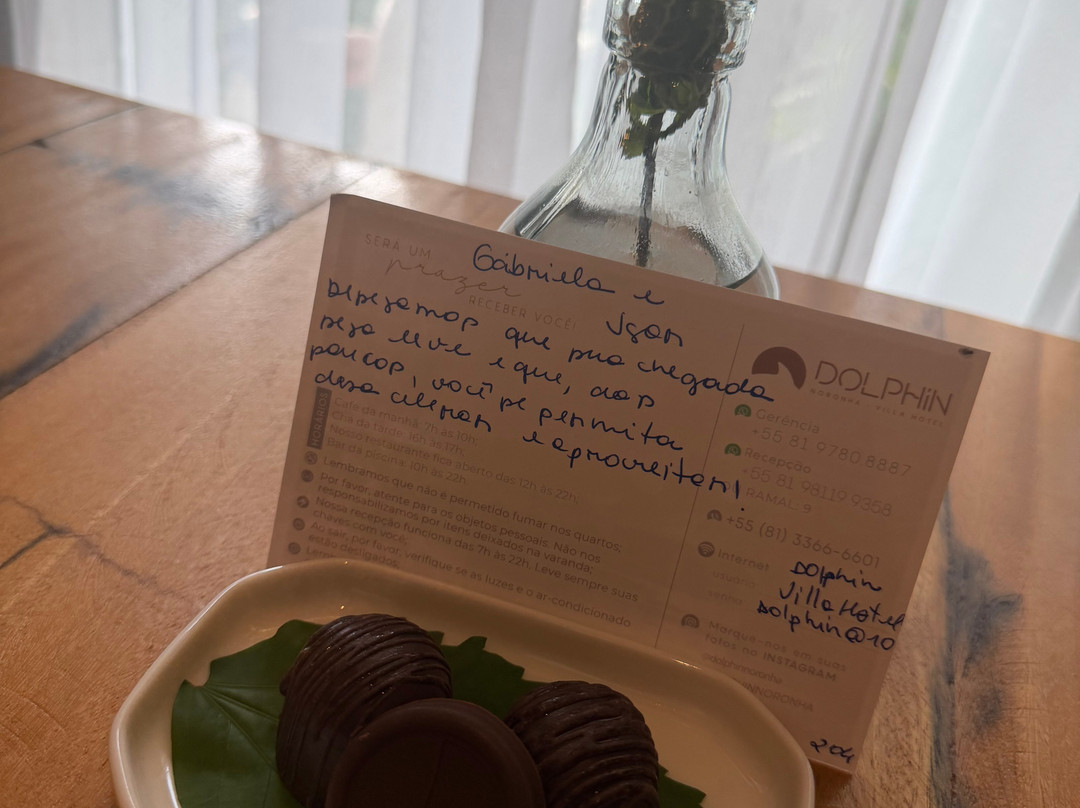 SERÁ UM
prazer
RECEBER VOCÊ!
Gabriela e
Igor
Desejamos que sua chegada
seja leve e que, aos
poucos, você se permita
desacelerar e aproveitar!
HORÁRIOS
Café da manhã: 7h às 10h;
Chá da tarde: 16h às 17h;
Nosso restaurante fica aberto das 12h às 22h;
Bar da piscina: 10h às 22h
Lembramos que não é permitido fumar nos quartos;
Por favor, atente para os objetos pessoais. Não nos
responsabilizamos por itens deixados na varanda;
Nossa recepção funciona das 7h às 22h. Leve sempre suas
chaves com você;
Ao sair, por favor, verifique se as luzes e o ar-condicionado
estão desligados;
DOLPHiN
NORONHA - VILLA HOTEL
Gerência
+55 81 9780.8887
Recepção
+55 81 98119.9358
RAMAL: 9
+55 (81) 3366-6601
Internet
usuário
senha
Dolphin
Villa Hotel
Dolphin@10
Marque-nos em suas
fotos no INSTAGRAM
204